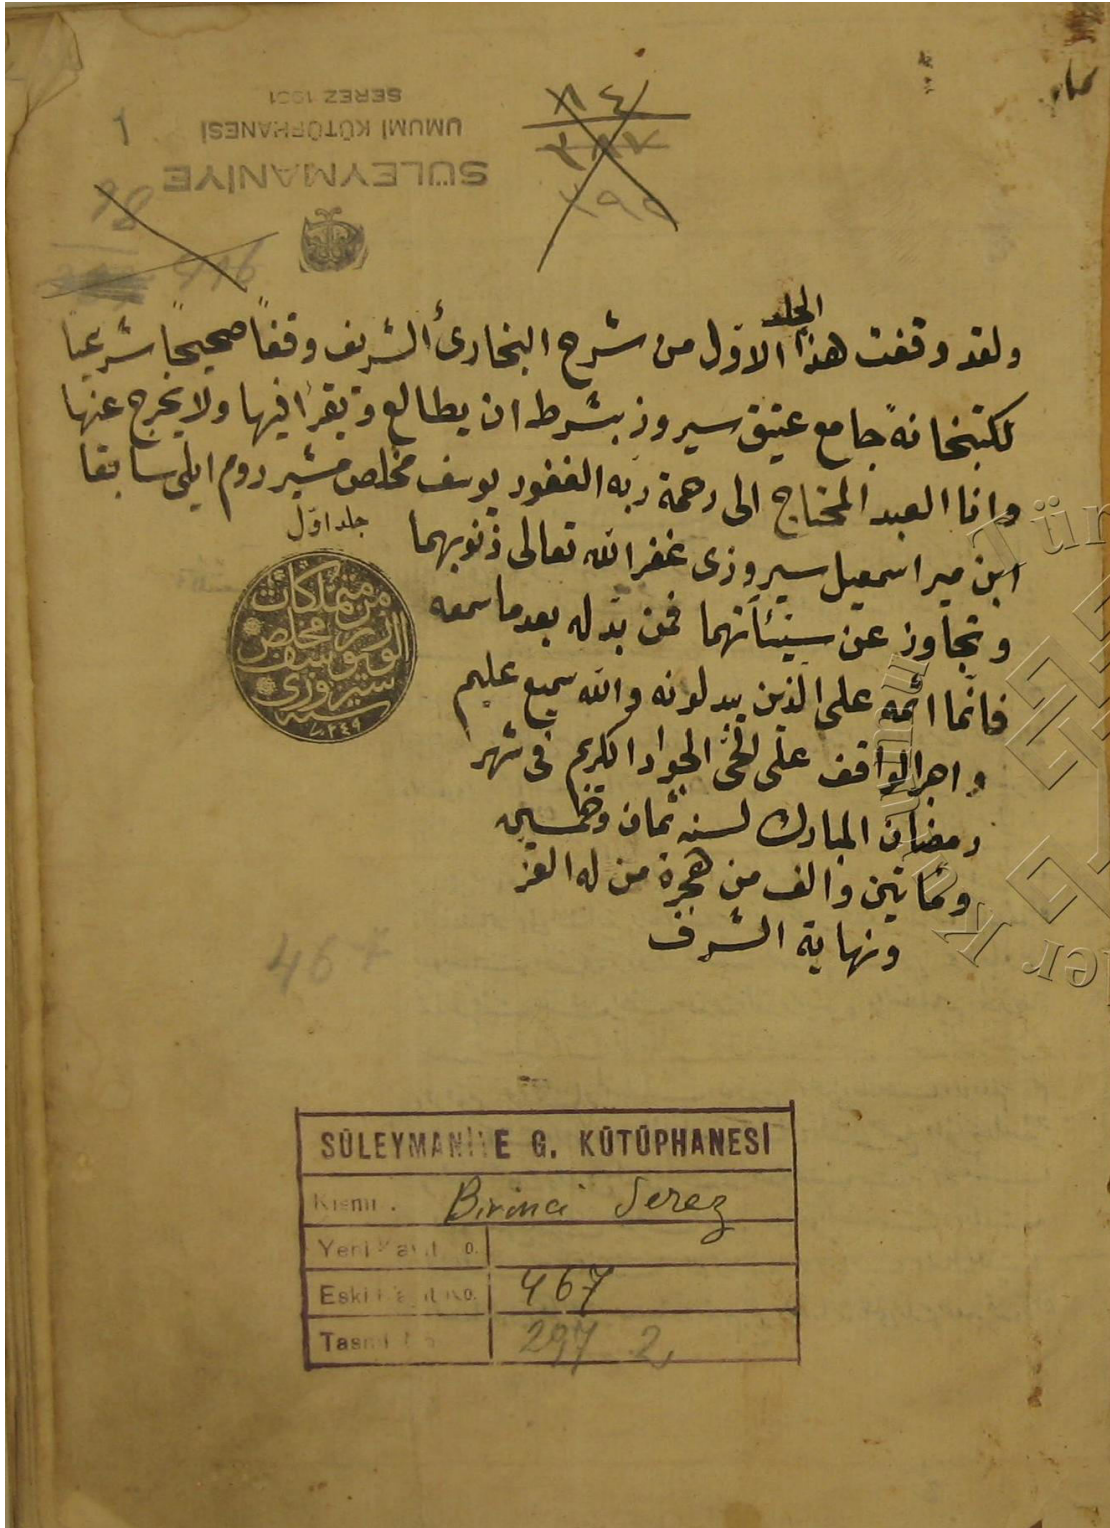 SÜLEYMANİYE
UMUMİ KÜTÜPHANESİ
SEREZ 1931
١
٨٤
98
416
الجلد
ولقد وقفت هذا الاوّل من شرح البخارئ الشريف وقفاً صحيحاً شرعيا
لكتبخانهٔ جامع عتيق سيروز بشرط ان يطالع ويقرأ فيها ولا يخرج عنها
وانا العبد المحتاج الى رحمة ربه الغفور يوسف مخلص مشير روم ايلى سابقا
ابن مير اسمعيل سيروزى غفر الله تعالى ذنوبهما
وتجاوز عن سيئاتهما فمن بدله بعدما سمعه
فانما اثمه على الذين يبدلونه والله سميع عليم
واجر الواقف على الحى الجواد الكريم فى شهر
رمضان المبارك لسنه ثمان وخمسين
ومأتين والف من هجرة من له العز
ونهاية الشرف
جلد اوّل
من متملكات
الوزير مخلص
يوسف
سيروزى
سنه ١٢٤٩
467
SÜLEYMANİYE G. KÜTÜPHANESİ
Kısmı . Birinci Serez
Yeni Kayıt No.
Eski Kayıt No. 467
Tasnif No. 297 2